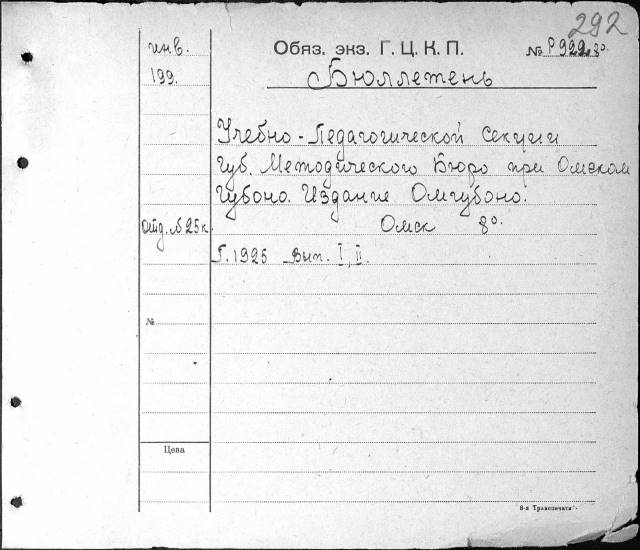 292
инв. Обяз. экз. Г. Ц. К. П. № Р 922 8°
199. Бюллетень
Учебно-Педагогической Секции
Губ. Методического Бюро при Омском
Губоно. Издание Омгубоно.
Отд. № 25 к. Омск 8°.
Г. 1925 Вып. I, II.
№
Цена
8-я Транспечати